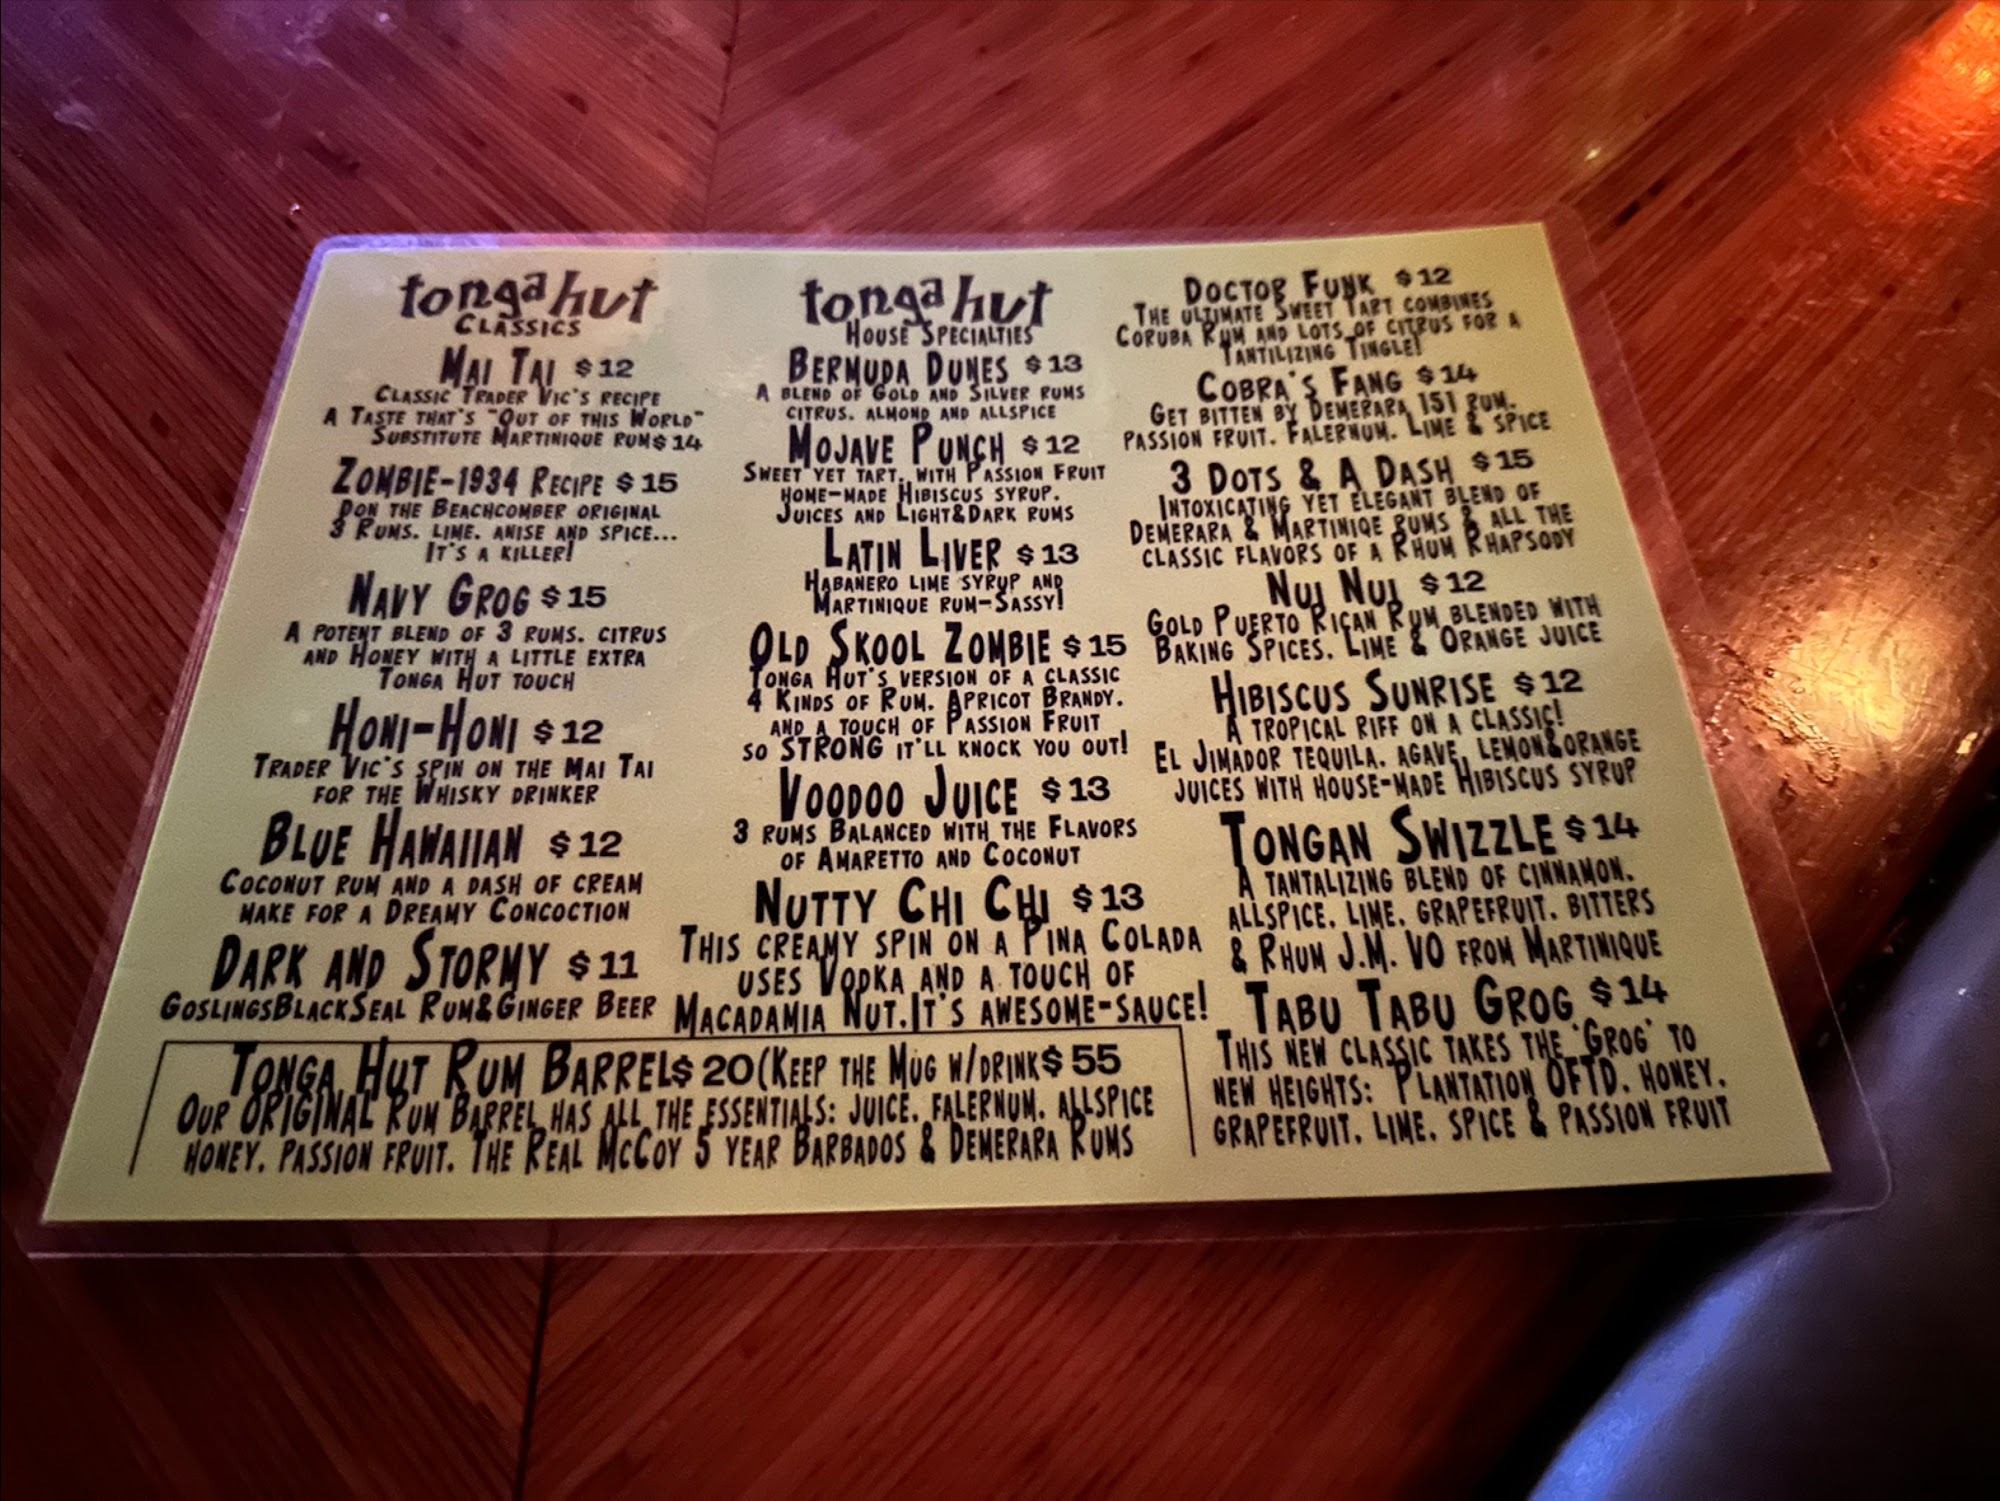 tonga hut
CLASSICS
MAI TAI $12
CLASSIC TRADER VIC'S RECIPE
A TASTE THAT'S "OUT OF THIS WORLD"
SUBSTITUTE MARTINIQUE RUM$14
ZOMBIE-1934 RECIPE $15
DON THE BEACHCOMBER ORIGINAL
3 RUMS. LIME. ANISE AND SPICE...
IT'S A KILLER!
NAVY GROG $15
A POTENT BLEND OF 3 RUMS. CITRUS
AND HONEY WITH A LITTLE EXTRA
TONGA HUT TOUCH
HONI-HONI $12
TRADER VIC'S SPIN ON THE MAI TAI
FOR THE WHISKY DRINKER
BLUE HAWAIIAN $12
COCONUT RUM AND A DASH OF CREAM
MAKE FOR A DREAMY CONCOCTION
DARK AND STORMY $11
GOSLINGSBLACKSEAL RUM&GINGER BEER
tonga hut
HOUSE SPECIALTIES
BERMUDA DUNES $13
A BLEND OF GOLD AND SILVER RUMS
CITRUS. ALMOND AND ALLSPICE
MOJAVE PUNCH $12
SWEET YET TART. WITH PASSION FRUIT
HOME-MADE HIBISCUS SYRUP.
JUICES AND LIGHT&DARK RUMS
LATIN LIVER $13
HABANERO LIME SYRUP AND
MARTINIQUE RUM-SASSY!
OLD SKOOL ZOMBIE $15
TONGA HUT'S VERSION OF A CLASSIC
4 KINDS OF RUM. APRICOT BRANDY.
AND A TOUCH OF PASSION FRUIT
SO STRONG IT'LL KNOCK YOU OUT!
VOODOO JUICE $13
3 RUMS BALANCED WITH THE FLAVORS
OF AMARETTO AND COCONUT
NUTTY CHI CHI $13
THIS CREAMY SPIN ON A PINA COLADA
USES VODKA AND A TOUCH OF
MACADAMIA NUT.IT'S AWESOME-SAUCE!
TONGA HUT RUM BARREL$20(KEEP THE MUG W/DRINK$55
OUR ORIGINAL RUM BARREL HAS ALL THE ESSENTIALS: JUICE. FALERNUM. ALLSPICE
HONEY. PASSION FRUIT. THE REAL MCCOY 5 YEAR BARBADOS & DEMERARA RUMS
DOCTOR FUNK $12
THE ULTIMATE SWEET TART COMBINES
CORUBA RUM AND LOTS OF CITRUS FOR A
TANTILIZING TINGLE!
COBRA'S FANG $14
GET BITTEN BY DEMERARA 151 RUM.
PASSION FRUIT. FALERNUM. LIME & SPICE
3 DOTS & A DASH $15
INTOXICATING YET ELEGANT BLEND OF
DEMERARA & MARTINIQE RUMS & ALL THE
CLASSIC FLAVORS OF A RHUM RHAPSODY
NUI NUI $12
GOLD PUERTO RICAN RUM BLENDED WITH
BAKING SPICES. LIME & ORANGE JUICE
HIBISCUS SUNRISE $12
A TROPICAL RIFF ON A CLASSIC!
EL JIMADOR TEQUILA. AGAVE. LEMON&ORANGE
JUICES WITH HOUSE-MADE HIBISCUS SYRUP
TONGAN SWIZZLE $14
A TANTALIZING BLEND OF CINNAMON.
ALLSPICE. LIME. GRAPEFRUIT. BITTERS
& RHUM J.M. VO FROM MARTINIQUE
TABU TABU GROG $14
THIS NEW CLASSIC TAKES THE 'GROG' TO
NEW HEIGHTS: PLANTATION OFTD. HONEY.
GRAPEFRUIT. LIME. SPICE & PASSION FRUIT